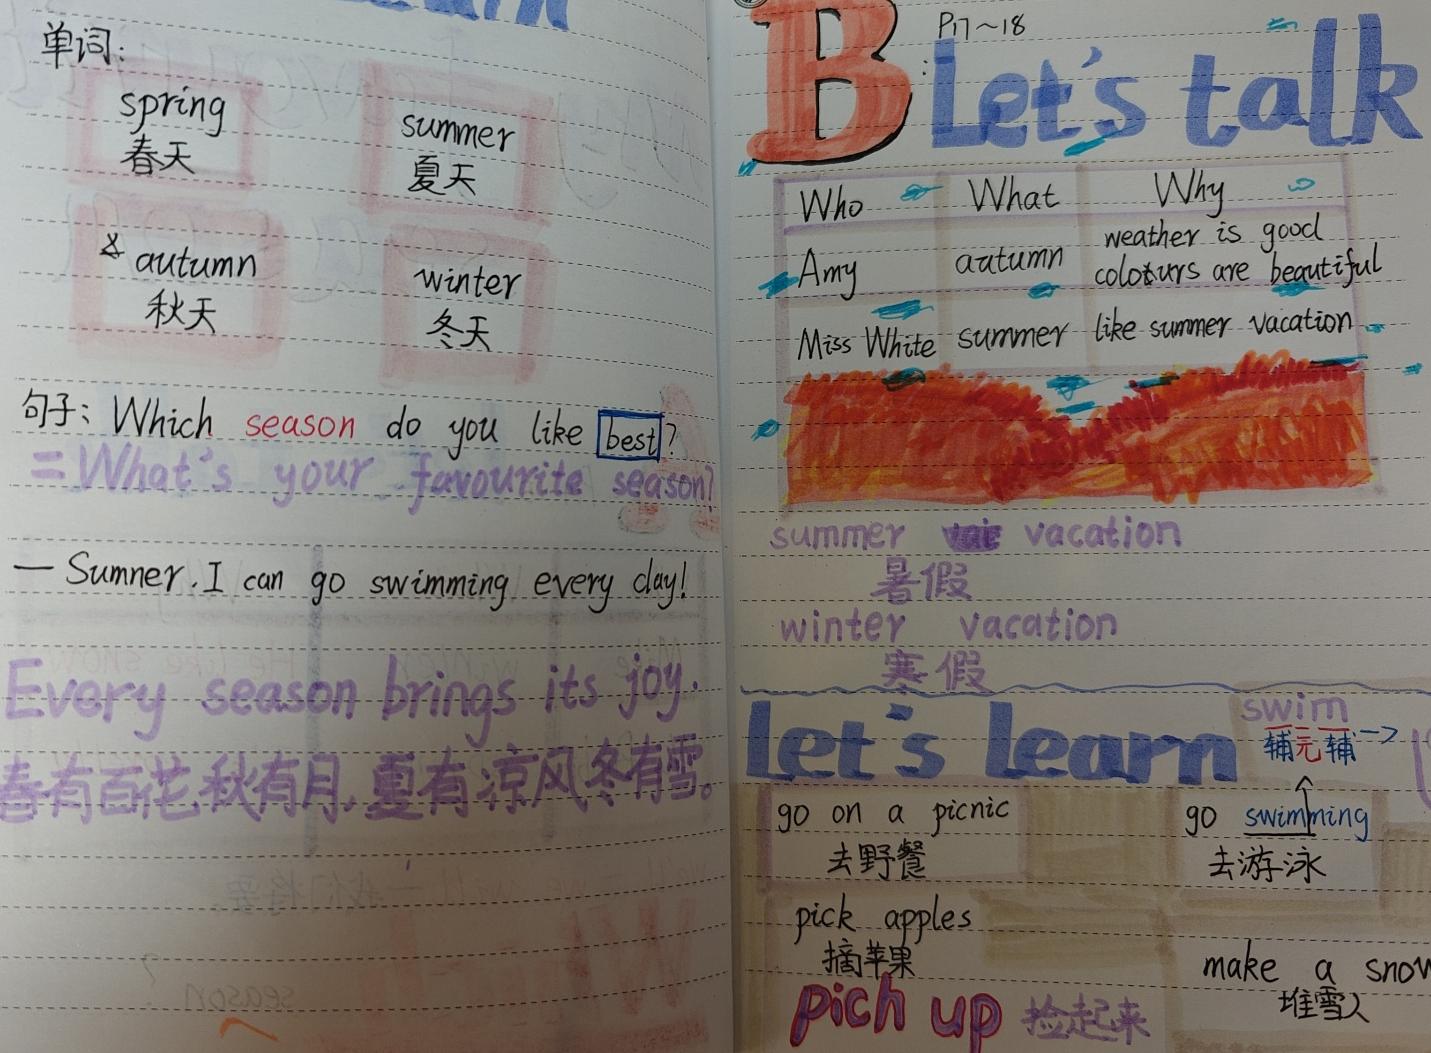 learn
单词:
spring
春天
summer
夏天
& autumn
秋天
winter
冬天
句子: Which season do you like best?
=What's your favourite season?
— Sumner. I can go swimming every day!
Every season brings its joy.
春有百花,秋有月,夏有凉风冬有雪。
B
P17~18
: Let's talk
Who What Why
Amy autumn weather is good
colours are beautiful
Miss White summer like summer vacation
summer vacation
暑假
winter vacation
寒假
let's learn
swim
辅元辅->
go on a picnic
去野餐
go swimming
去游泳
pick apples
摘苹果
make a snow
堆雪人
pich up 捡起来